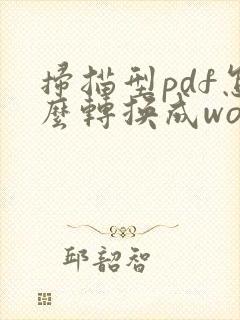 掃描型pdf怎
麼轉換成wo
邱韶智